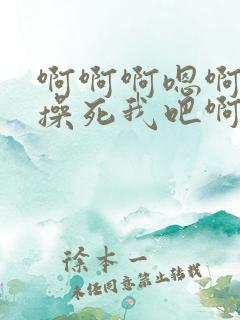 啊啊啊嗯啊
操死我吧啊
徐本一
未经同意禁止转载